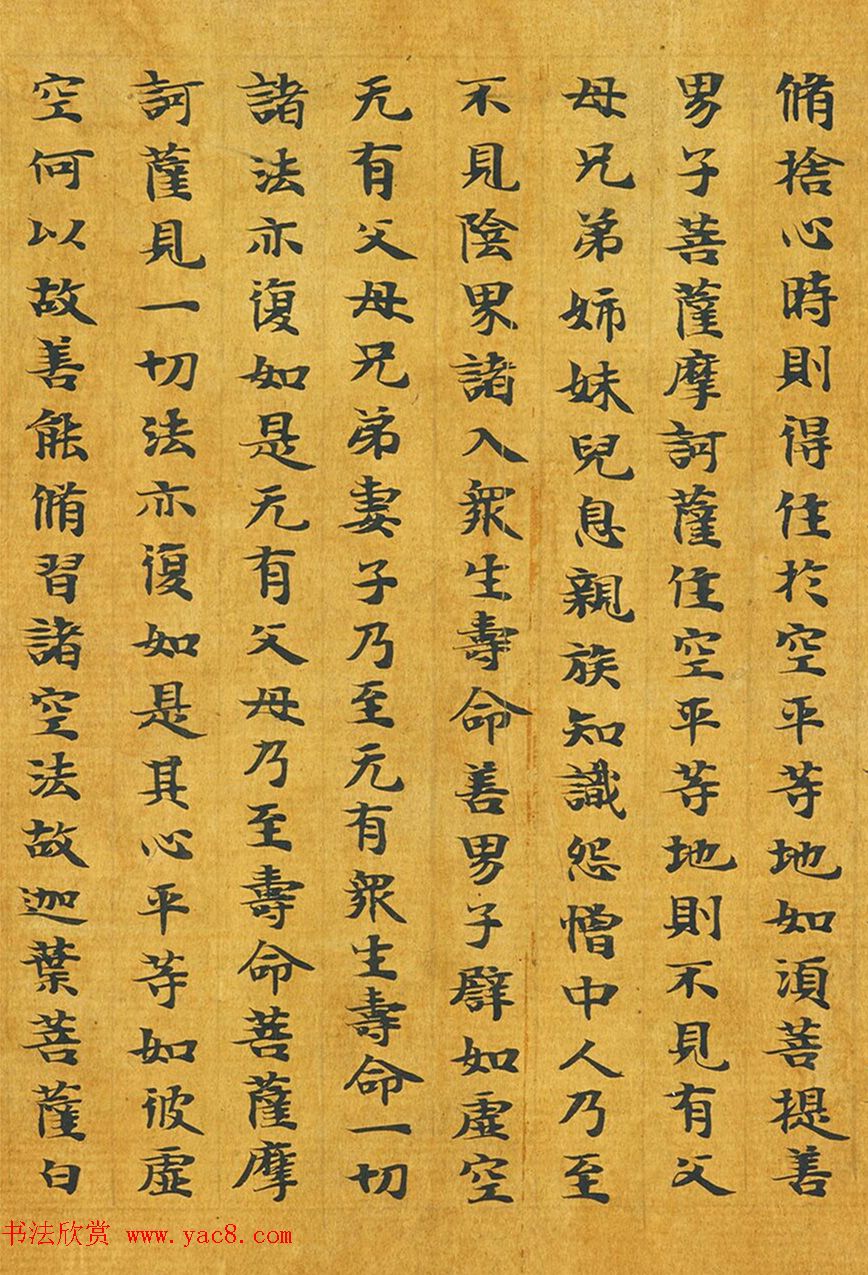 脩捨心時則得住於空平等地如湏菩提善
男子菩薩摩訶薩住空平等地則不見有父
母兄弟姊妹兒息親族知識怨憎中人乃至
不見陰界諸入衆生壽命善男子譬如虛空
无有父母兄弟妻子乃至无有衆生壽命一切
諸法亦復如是无有父母乃至壽命菩薩摩
訶薩見一切法亦復如是其心平等如彼虛
空何以故善能脩習諸空法故迦葉菩薩白
书法欣赏 www.yac8.com